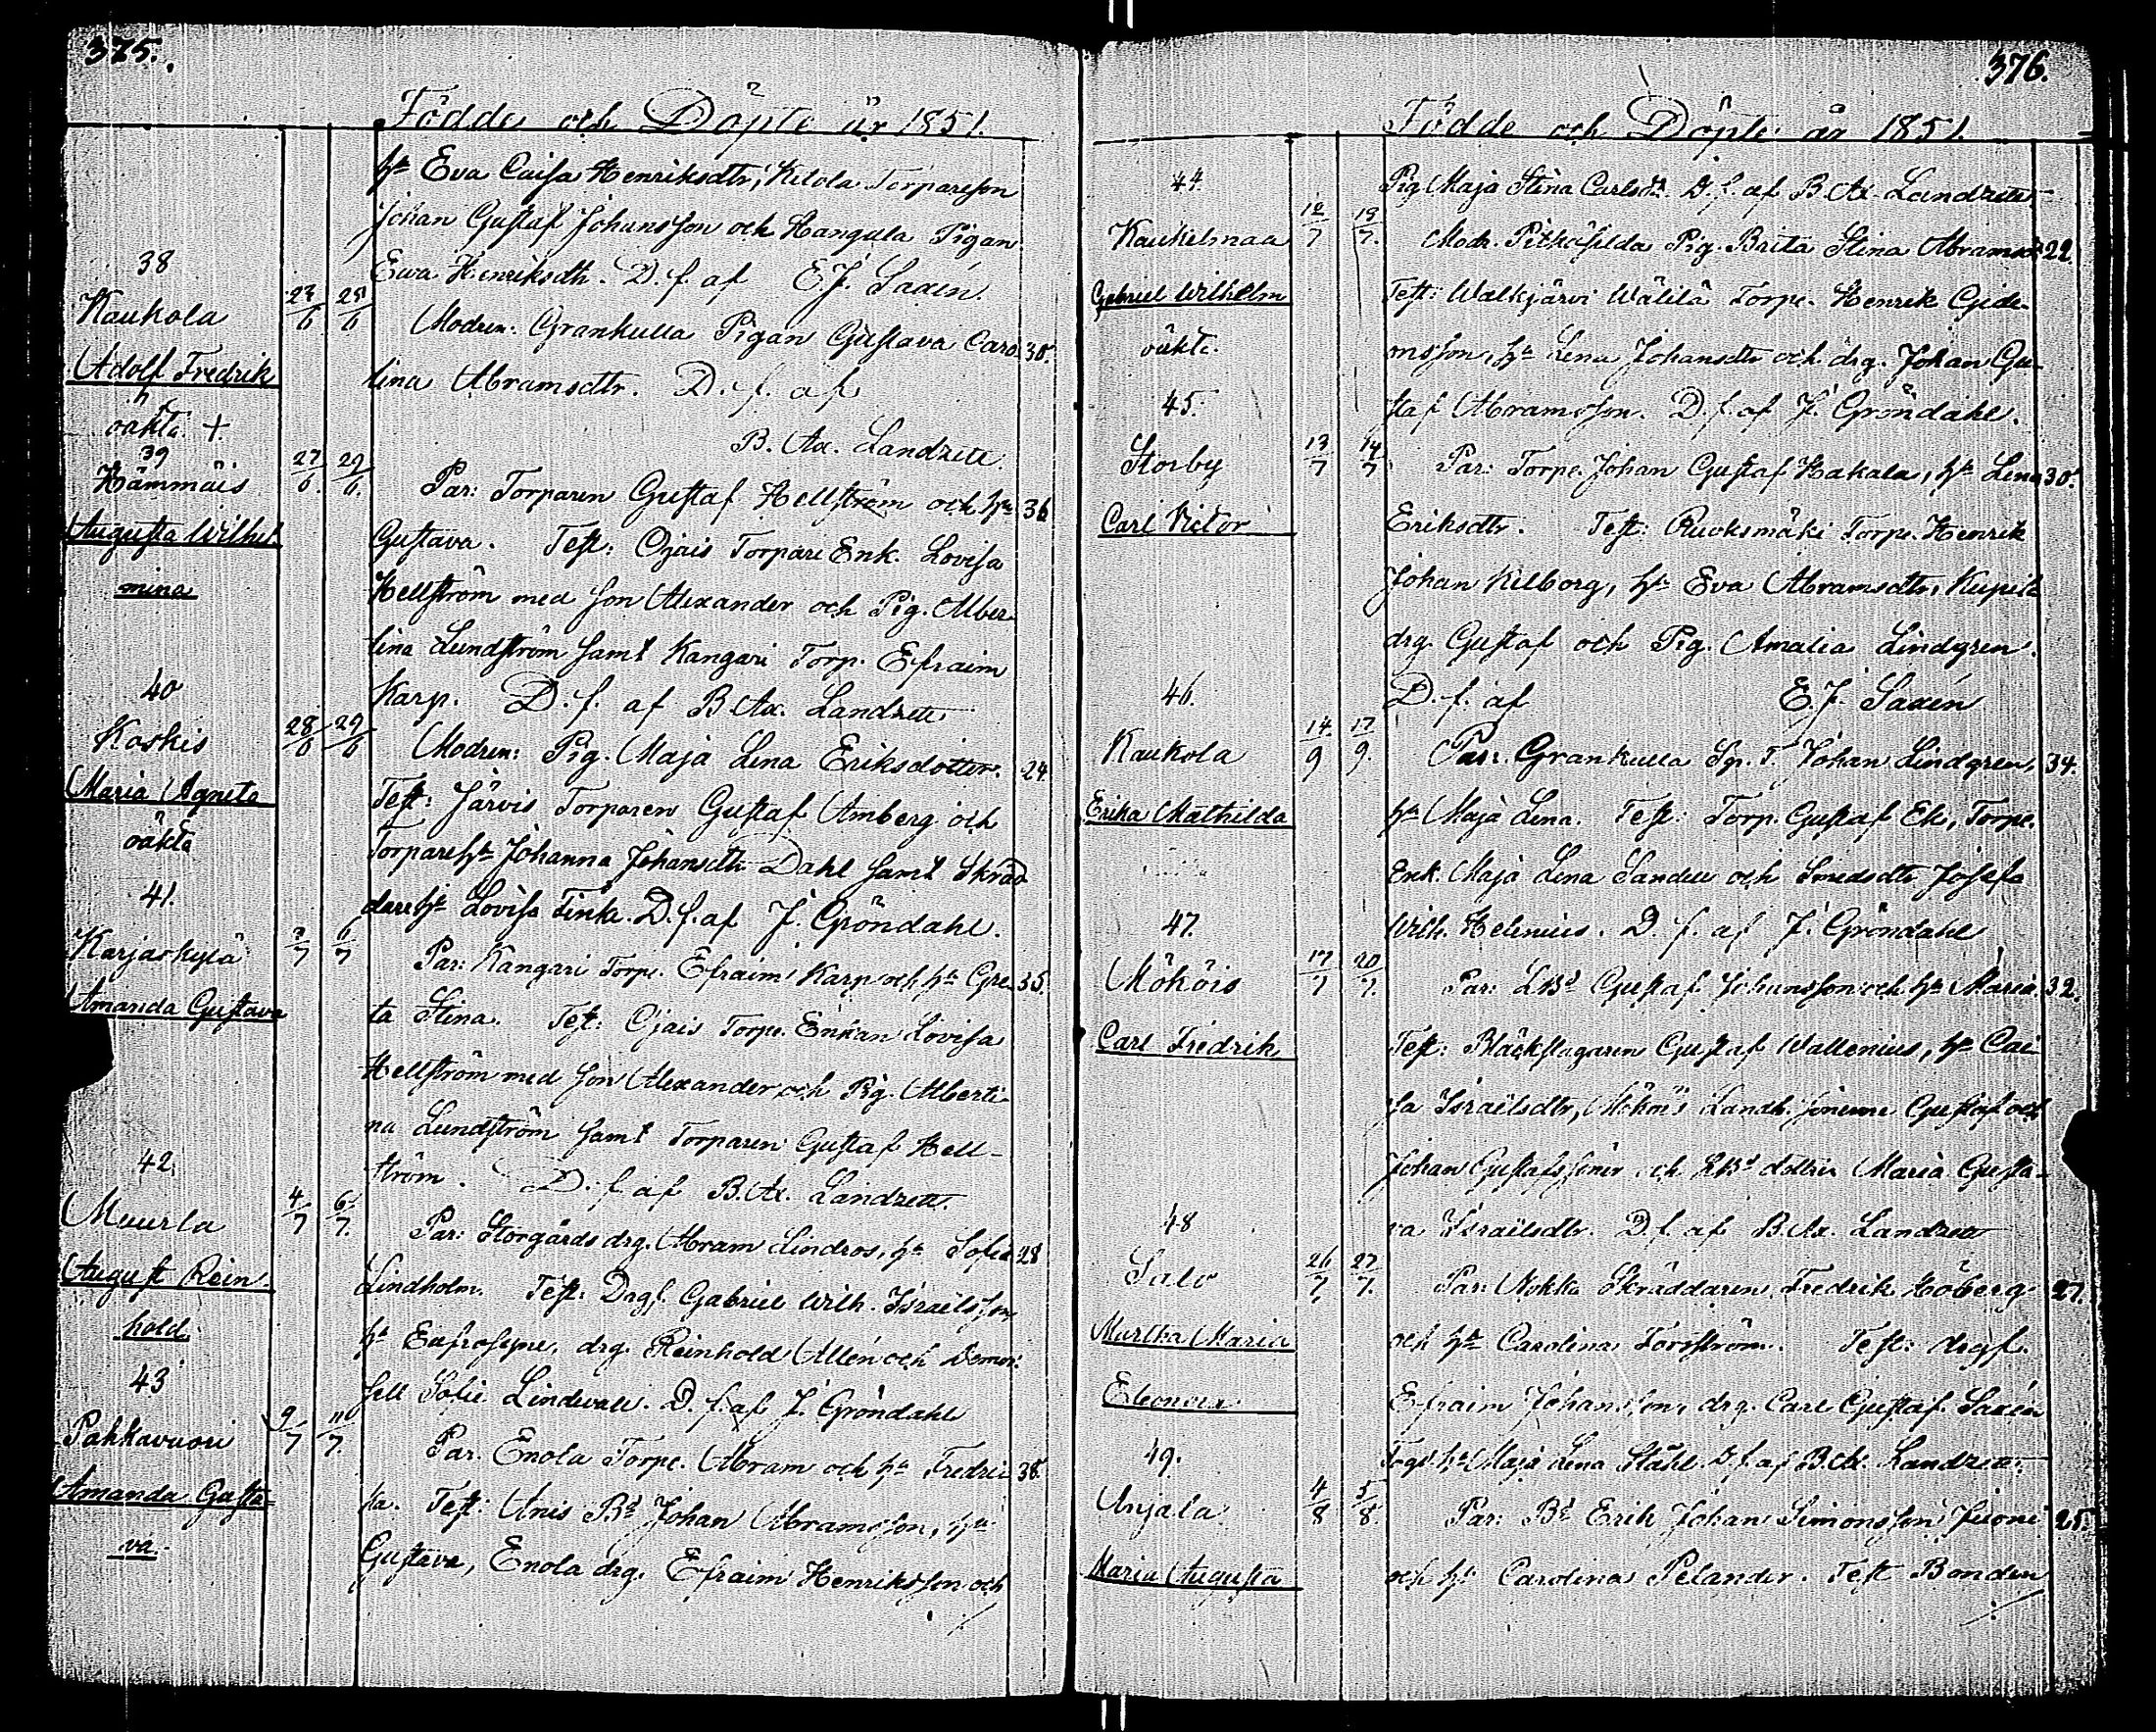 375.
Födde och Döpte år 1851.
hu Eva Caisa Henriksdtr, Kilola Torpareson
Johan Gustaf Johansson och Hangula Pigan
Ewa Henriksdtr. D. f. af E. J. Saxén.
38
Kaukola 23/6 25/6 Modren: Grankulla Pigan Gustava Caro 30.
Adolf Fredrik
lina Abramsdtr. D. f. af
oäkta. +.
B. Ax. Landzett.
39
Hämmäis 27/6. 29/6. Par: Torparen Gustaf Hellström och hu 36
Augusta Wilhel
Gustava. Test: Ojais Torpare Enk. Lovisa
mina
Hellström med son Alexander och Pig. Alber
tina Lundström samt Kangari Torp. Efraim
40
Karp. D. f. af B. Ax. Landzett
Koskis 28/6 29/6 Modren: Pig. Maja Lena Eriksdotter. 24
Maria Agneta
Test: Järvis Torparen Gustaf Amberg och
oäkta
Torparehu Johanna Johansdtr Dahl samt Skräd
41.
darehu Lovisa Fink. D. f. af J. Gröndahl.
Karjaskylä 3/7 6/7 Par: Kangari Torpe. Efraim Karp och hu Gre 35.
Amanda Gustava
ta Stina. Test: Ojais Torpe. Enkan Lovisa
Hellström med son Alexander och Pig. Alberti
na Lundström samt Torparen Gustaf Hell-
42
ström. D. f. af B. Ax. Landzett.
Muurla 4/7 6/7. Par: Storgårds drg. Abram Lindros, hu Sofia 28
August Rein-
Lindholm. Test: Drgl. Gabriel Wilh. Israelsson
hold
hu Eufrosyne, drg. Reinhold Allén och Demoi
43
sell Sofie Lindevall. D. f. af J. Gröndahl
Pakkavuori 9/7 11/7. Par. Enola Torpe. Abram och hu Fredri 38.
Amanda Gusta
ka. Test: Unis Bd Johan Abramsson, hu
va.
Gustava, Enola drg. Efraim Henriksson och
376.
Födde och Döpte år 1851.
44.
Pig. Maja Stina Carlsdtr. D. f. af B. Ax. Landzett
Kaukelmaa 12/7 13/7. Modr. Pitkäsilda Pig. Brita Stina Abramsd 22.
Gabriel Wilhelm
Test: Walkjärvi Wälilä Torpe. Henrik Gide-
oäkta.
onsson, hu Lena Johansdtr och drg. Johan Gu-
45.
staf Abramsson. D. f. af J. Gröndahl.
Storby 13/7 14/7 Par: Torpe. Johan Gustaf Hakala, hu Lena 30.
Carl Victor
Eriksdtr. Test: Ruoksmäki Torpe. Henrik
Johan Kilborg, hu Eva Abramsdtr,
drg. Gustaf och Pig. Amalia Lindgren.
46.
D. f. af E. J. Saxén
Kaukola 14/9 17/9. Par. Grankulla Johan Lindgren, 34.
Erika Mathilda
hu Maja Lena. Test: Torp. Gustaf Ek, Torpe.
Enk. Maja Lena Sandell och Smedsdtr Josefa
47.
Wilh. Helenius. D. f. af J. Gröndahl
Mököis 17/7 20/7. Par: LBd Gustaf Johansson och hu Maria. 32.
Carl Fredrik
Test: Bläckslagaren Gustaf Wallenius, hu Cai
sa Israelsdtr, Mököis Landb. sönerne Gustaf och
Johan Gustafssöner och LBd dottren Maria Gusta-
48
va Israelsdtr. D. f. af B. Ax. Landzett
Salo 26/7 27/7. Par: Nokka Skräddaren Fredrik Höberg 27.
Martha Maria
och hu Carolina Forsström. Test: drgl.
Eleonora
Efraim Johansson, drg. Carl Gustaf Saxén
49.
hu Maja Lena Ståhl. D. f. af B. Ax. Landzett.
Anjala 4/8 5/8. Par: Bd Erik Johan Simonsson Juoni 25.
Maria Augusta
och hu Carolina Pelander. Test Bonden